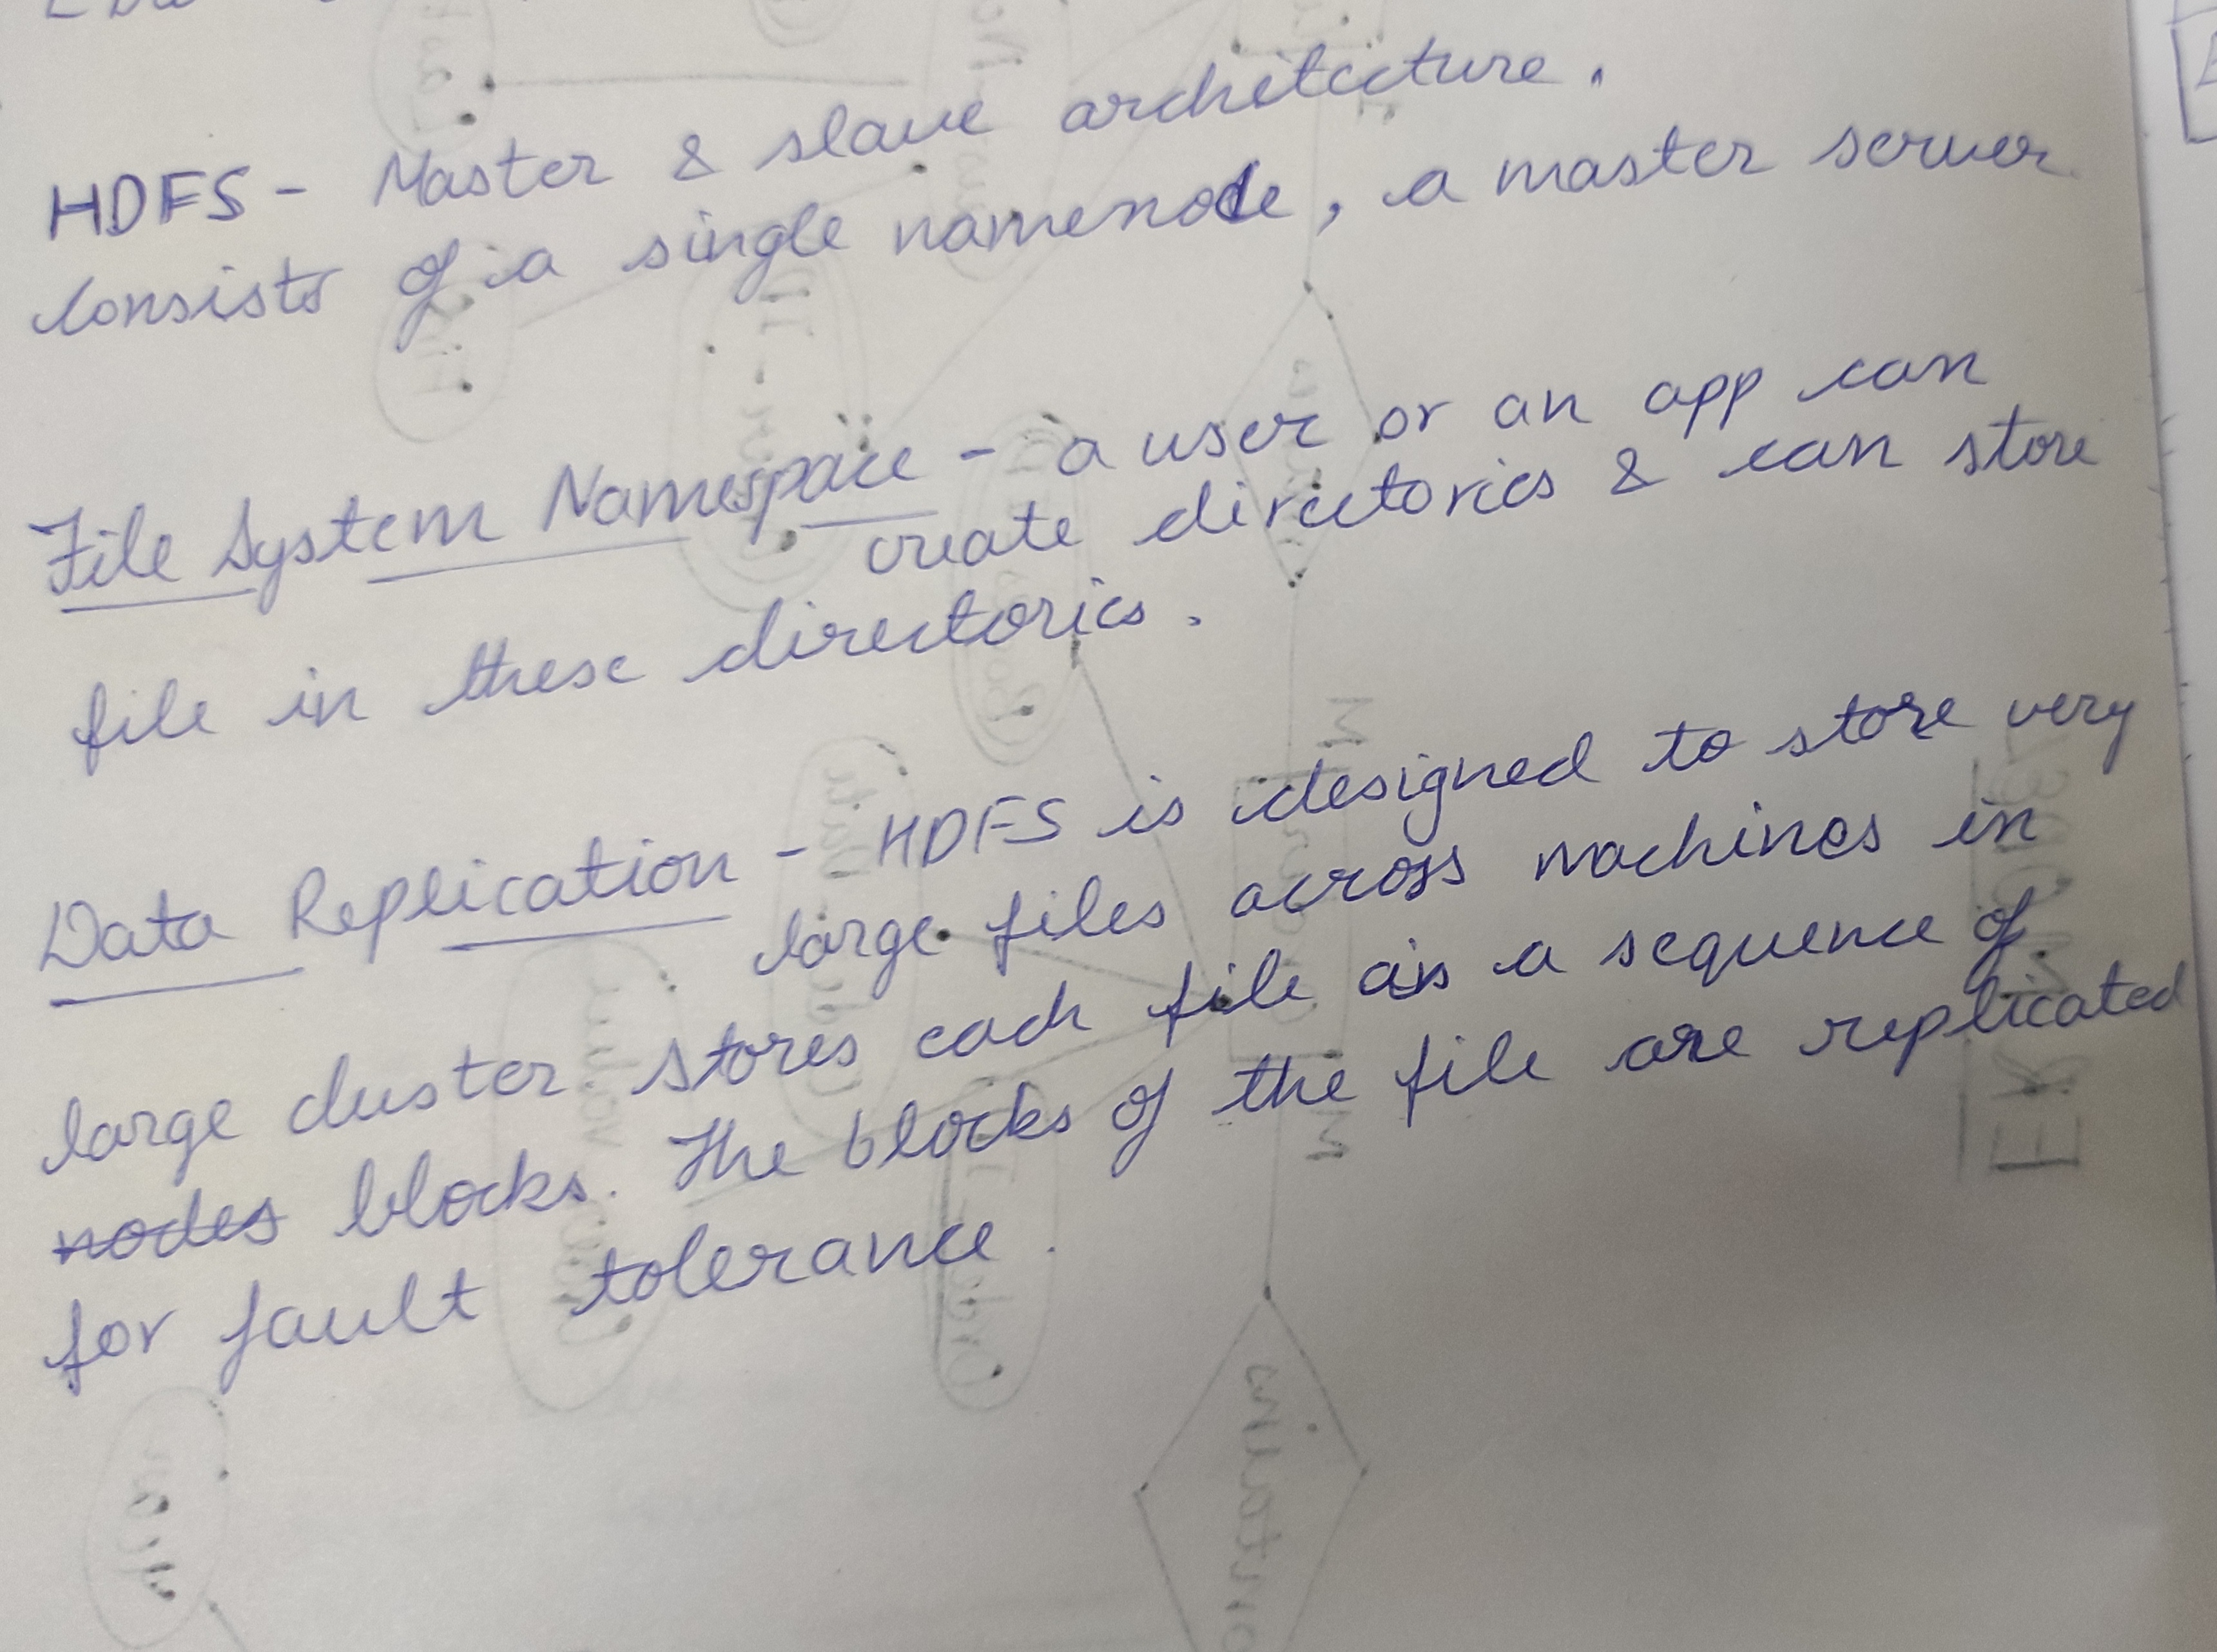 HDFS - Master & slave architecture.
consists of a single namenode, a master server
File System Namespace - a user or an app can
create directories & can store
file in these directories.
Data Replication - HDFS is designed to store very
large files across machines in
large cluster stores each file as a sequence of
nodes blocks. The blocks of the file are replicated
for fault tolerance.